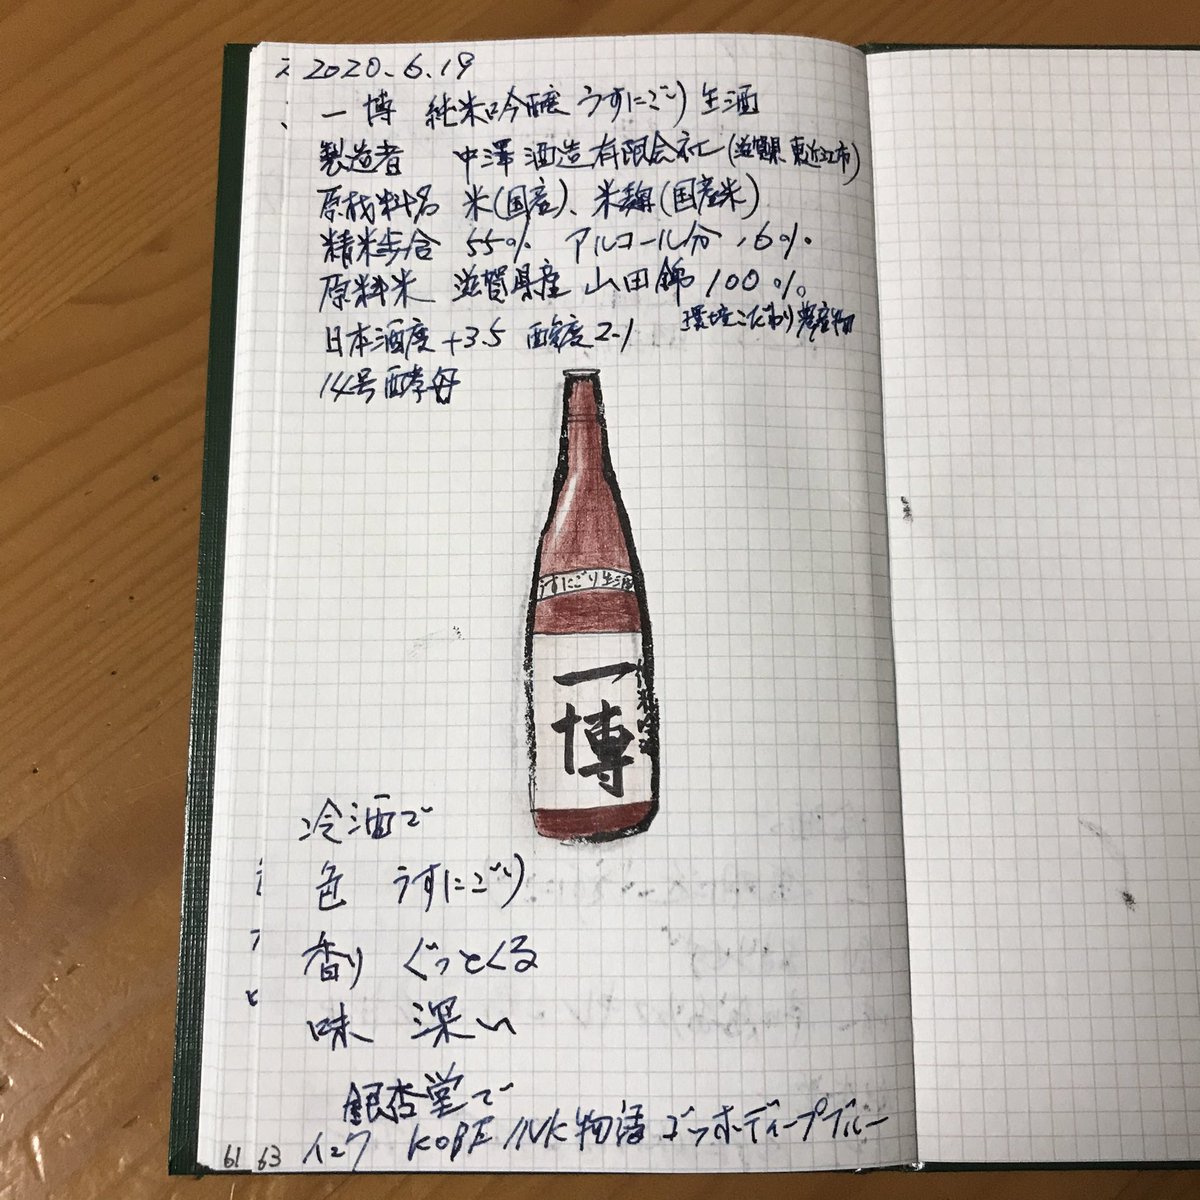 2020.6.19
一博 純米吟醸 うすにごり 生酒
製造者 中澤酒造有限会社(滋賀県東近江市)
原材料名 米(国産)、米麹(国産米)
精米歩合 55% アルコール分 16%
原料米 滋賀県産 山田錦100%
環境こだわり農産物
日本酒度+3.5 酸度2.1
14号酵母
うすにごり生酒
一博
冷酒で
色 うすにごり
香り ぐっとくる
味 深い
銀杏堂で
インク KOBE INK物語 ゴッホディープブルー
61 63